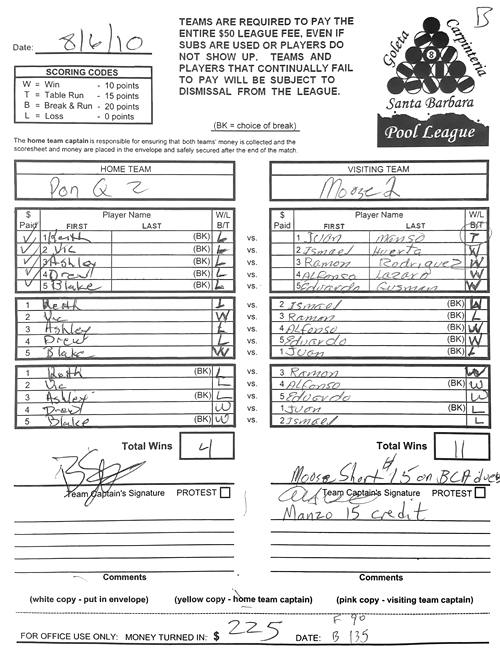 B
Date: 8/6/10
TEAMS ARE REQUIRED TO PAY THE
ENTIRE $50 LEAGUE FEE, EVEN IF
SUBS ARE USED OR PLAYERS DO
NOT SHOW UP. TEAMS AND
PLAYERS THAT CONTINUALLY FAIL
TO PAY WILL BE SUBJECT TO
DISMISSAL FROM THE LEAGUE.
(BK = choice of break)
Goleta Carpinteria
Santa Barbara
Pool League
SCORING CODES
W = Win - 10 points
T = Table Run - 15 points
B = Break & Run - 20 points
L = Loss - 0 points
The home team captain is responsible for ensuring that both teams' money is collected and the
scoresheet and money are placed in the envelope and safely secured after the end of the match.
HOME TEAM VISITING TEAM
Don Q 2 Moose 2
$ Paid Player Name FIRST LAST W/L B/T $ Paid Player Name FIRST LAST W/L B/T
1 Keith (BK) L vs. 1 Juan Manso T
2 Vic (BK) L vs. 2 Ismael Huerta W
3 Ashley (BK) L vs. 3 Ramon Rodriguez W
4 Drew (BK) L vs. 4 Alfonso Lazaro W
5 Blake (BK) L vs. 5 Eduardo Gusman W
1 Keith L vs. 2 Ismael (BK) W
2 Vic W vs. 3 Ramon (BK) L
3 Ashley L vs. 4 Alfonso (BK) W
4 Drew L vs. 5 Eduardo (BK) W
5 Blake W vs. 1 Juan (BK) L
1 Keith (BK) L vs. 3 Ramon W
2 Vic L vs. 4 Alfonso (BK) W
3 Ashley (BK) L vs. 5 Eduardo W
4 Drew W vs. 1 Juan (BK) L
5 Blake (BK) W vs. 2 Ismael L
Total Wins 4 Total Wins 11
Moose Short $15 on BCA dues
Team Captain's Signature PROTEST Team Captain's Signature PROTEST
Manzo 15 credit
Comments Comments
(white copy - put in envelope) (yellow copy - home team captain) (pink copy - visiting team captain)
FOR OFFICE USE ONLY: MONEY TURNED IN: $ 225 DATE: F 90
B 135